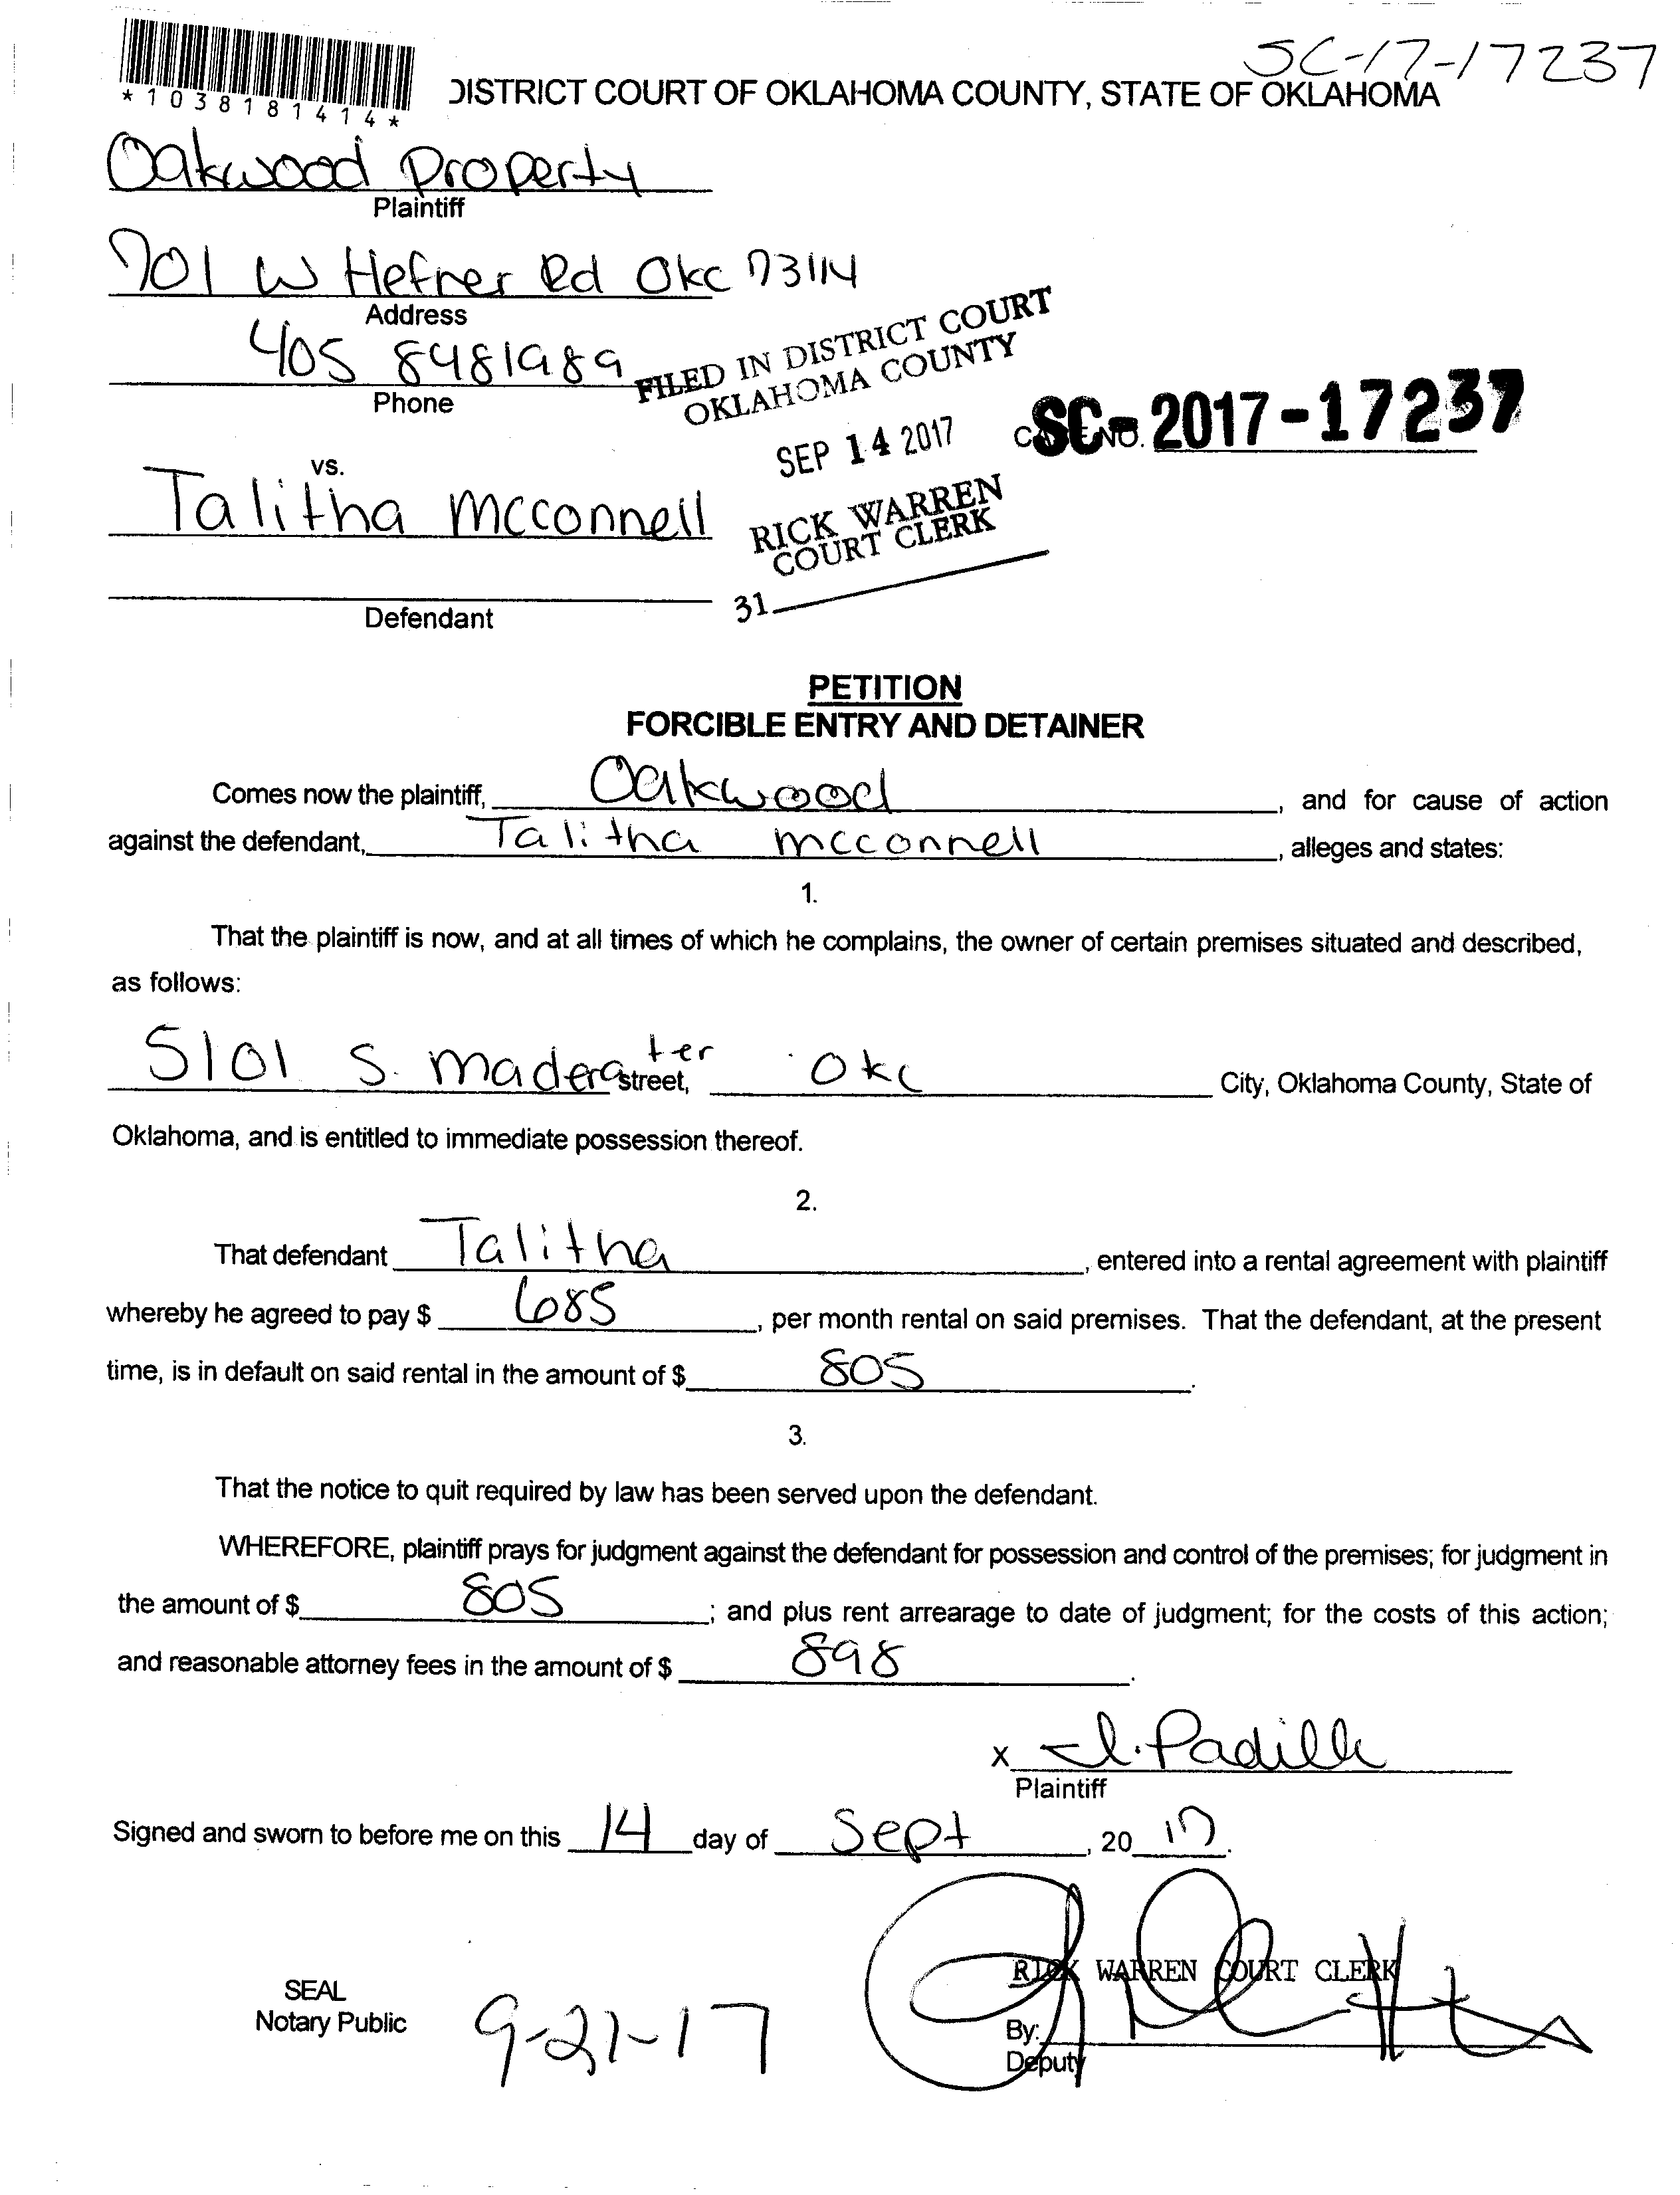 SC-17-17237
*1038181414*
DISTRICT COURT OF OKLAHOMA COUNTY, STATE OF OKLAHOMA
Oakwood Property
Plaintiff
701 W Hefner Rd Okc 73114
Address
405 8481989
Phone
FILED IN DISTRICT COURT
OKLAHOMA COUNTY
SEP 14 2017
CASE NO. SC-2017-17237
RICK WARREN
COURT CLERK
31
vs.
Talitha mcconnell
Defendant
PETITION
FORCIBLE ENTRY AND DETAINER
Comes now the plaintiff, Oakwood, and for cause of action
against the defendant, Talitha mcconnell, alleges and states:
1.
That the plaintiff is now, and at all times of which he complains, the owner of certain premises situated and described,
as follows:
5101 S. madera ter street, Okc City, Oklahoma County, State of
Oklahoma, and is entitled to immediate possession thereof.
2.
That defendant Talitha, entered into a rental agreement with plaintiff
whereby he agreed to pay $ 685, per month rental on said premises. That the defendant, at the present
time, is in default on said rental in the amount of $ 805.
3.
That the notice to quit required by law has been served upon the defendant.
WHEREFORE, plaintiff prays for judgment against the defendant for possession and control of the premises; for judgment in
the amount of $ 805; and plus rent arrearage to date of judgment; for the costs of this action;
and reasonable attorney fees in the amount of $ 898.
x I. Padilla
Plaintiff
Signed and sworn to before me on this 14 day of Sept, 20 17.
RICK WARREN COURT CLERK
SEAL
Notary Public
9-21-17
By:
Deputy